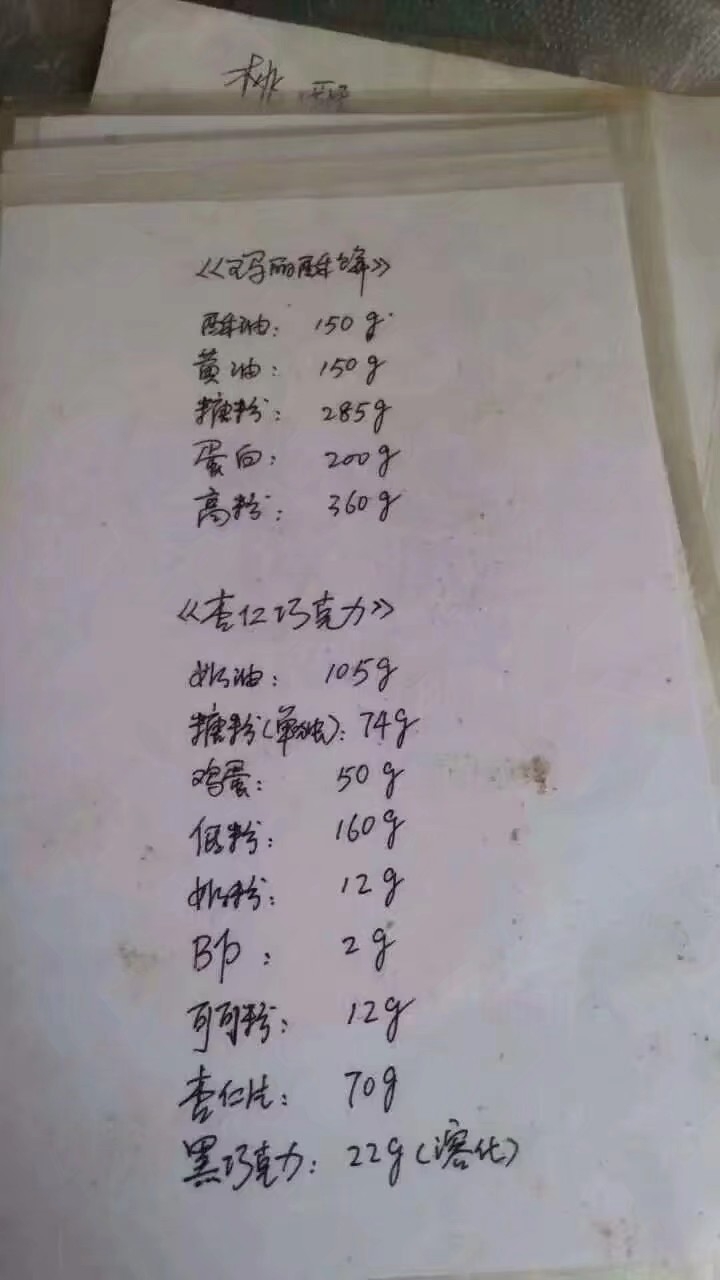 桃酥
《玛丽酥饼》
酥油： 150g
黄油： 150g
糖粉： 285g
蛋白： 200g
高粉： 360g
《杏仁巧克力》
奶油： 105g
糖粉(单独)：74g
鸡蛋： 50g
低粉： 160g
奶粉： 12g
BP： 2g
可可粉： 12g
杏仁片： 70g
黑巧克力： 22g(溶化)